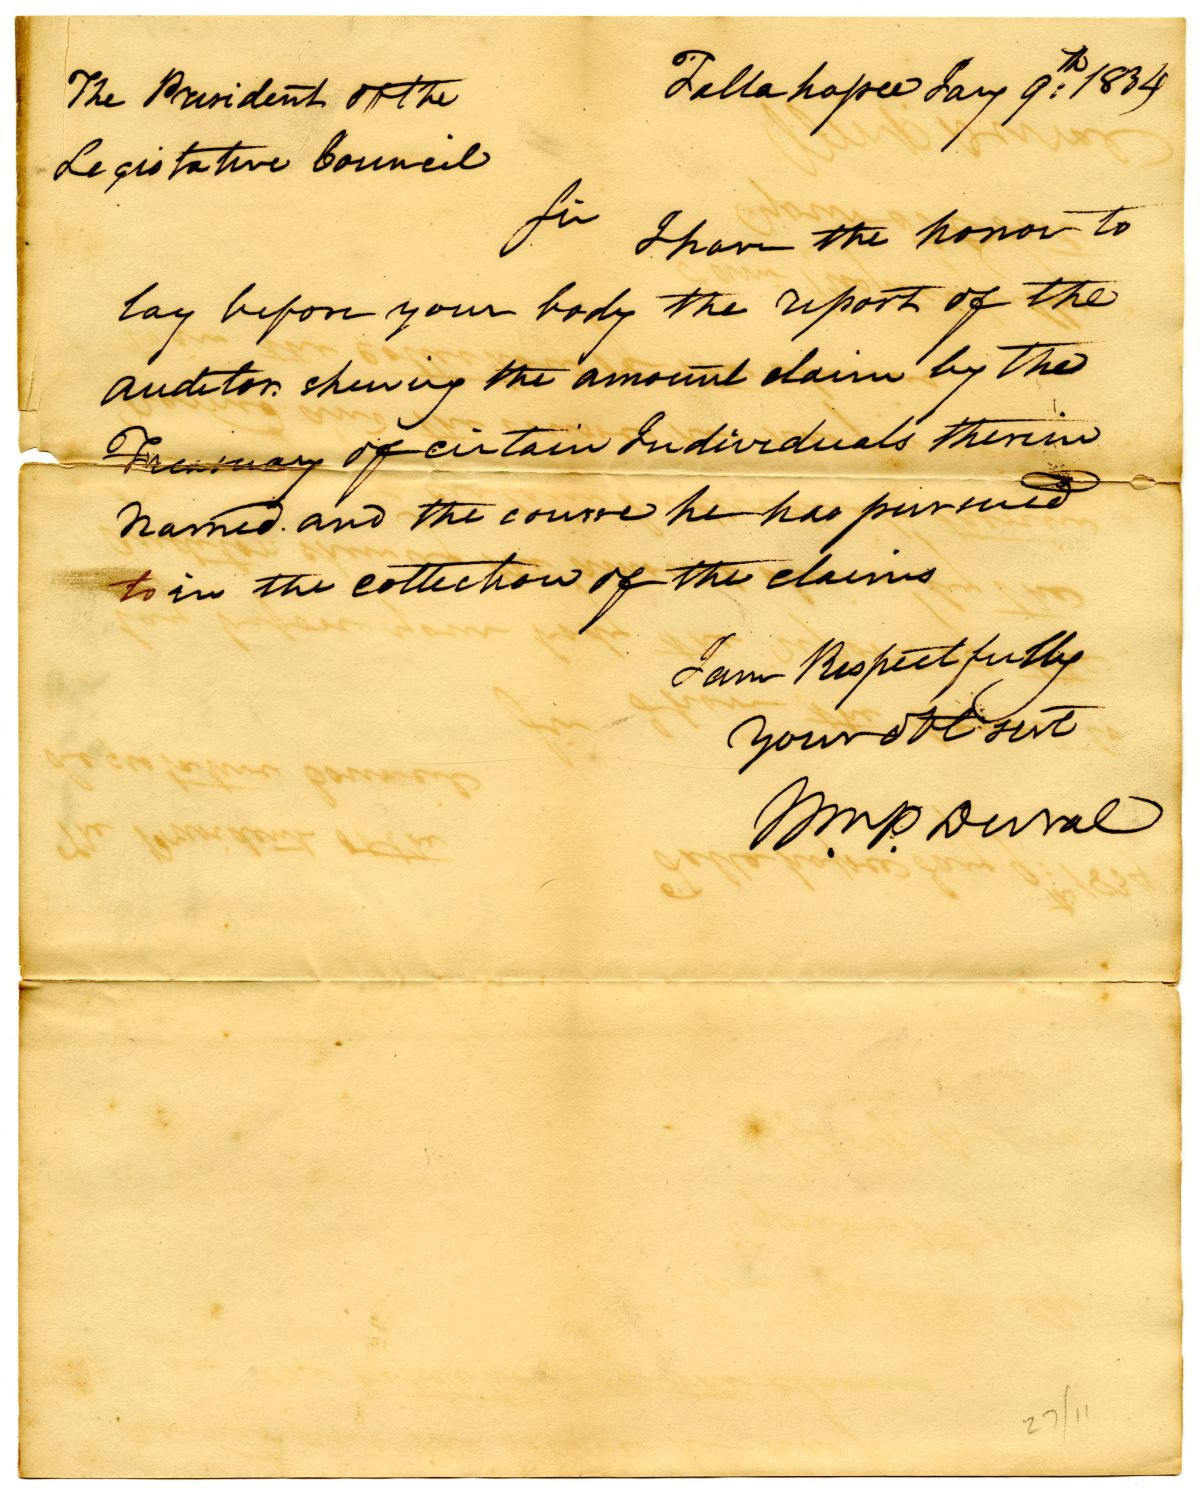 Tallahassee Jany 9th: 1834
The President of the
Legislative Council
Sir I have the honor to
lay before your body the report of the
auditor. shewing the amount claim by the
Treasury of cirtain Individuals therein
Named. and the course he has pursued
to in the collection of the claims
I am Respectfully
your obt sert
Wm. P. Duval
27/11